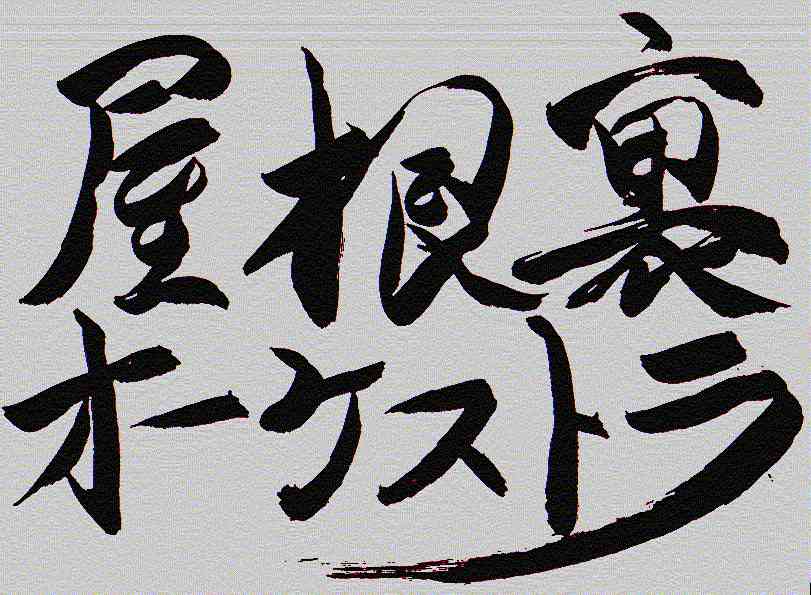 屋根裏
オーケストラ